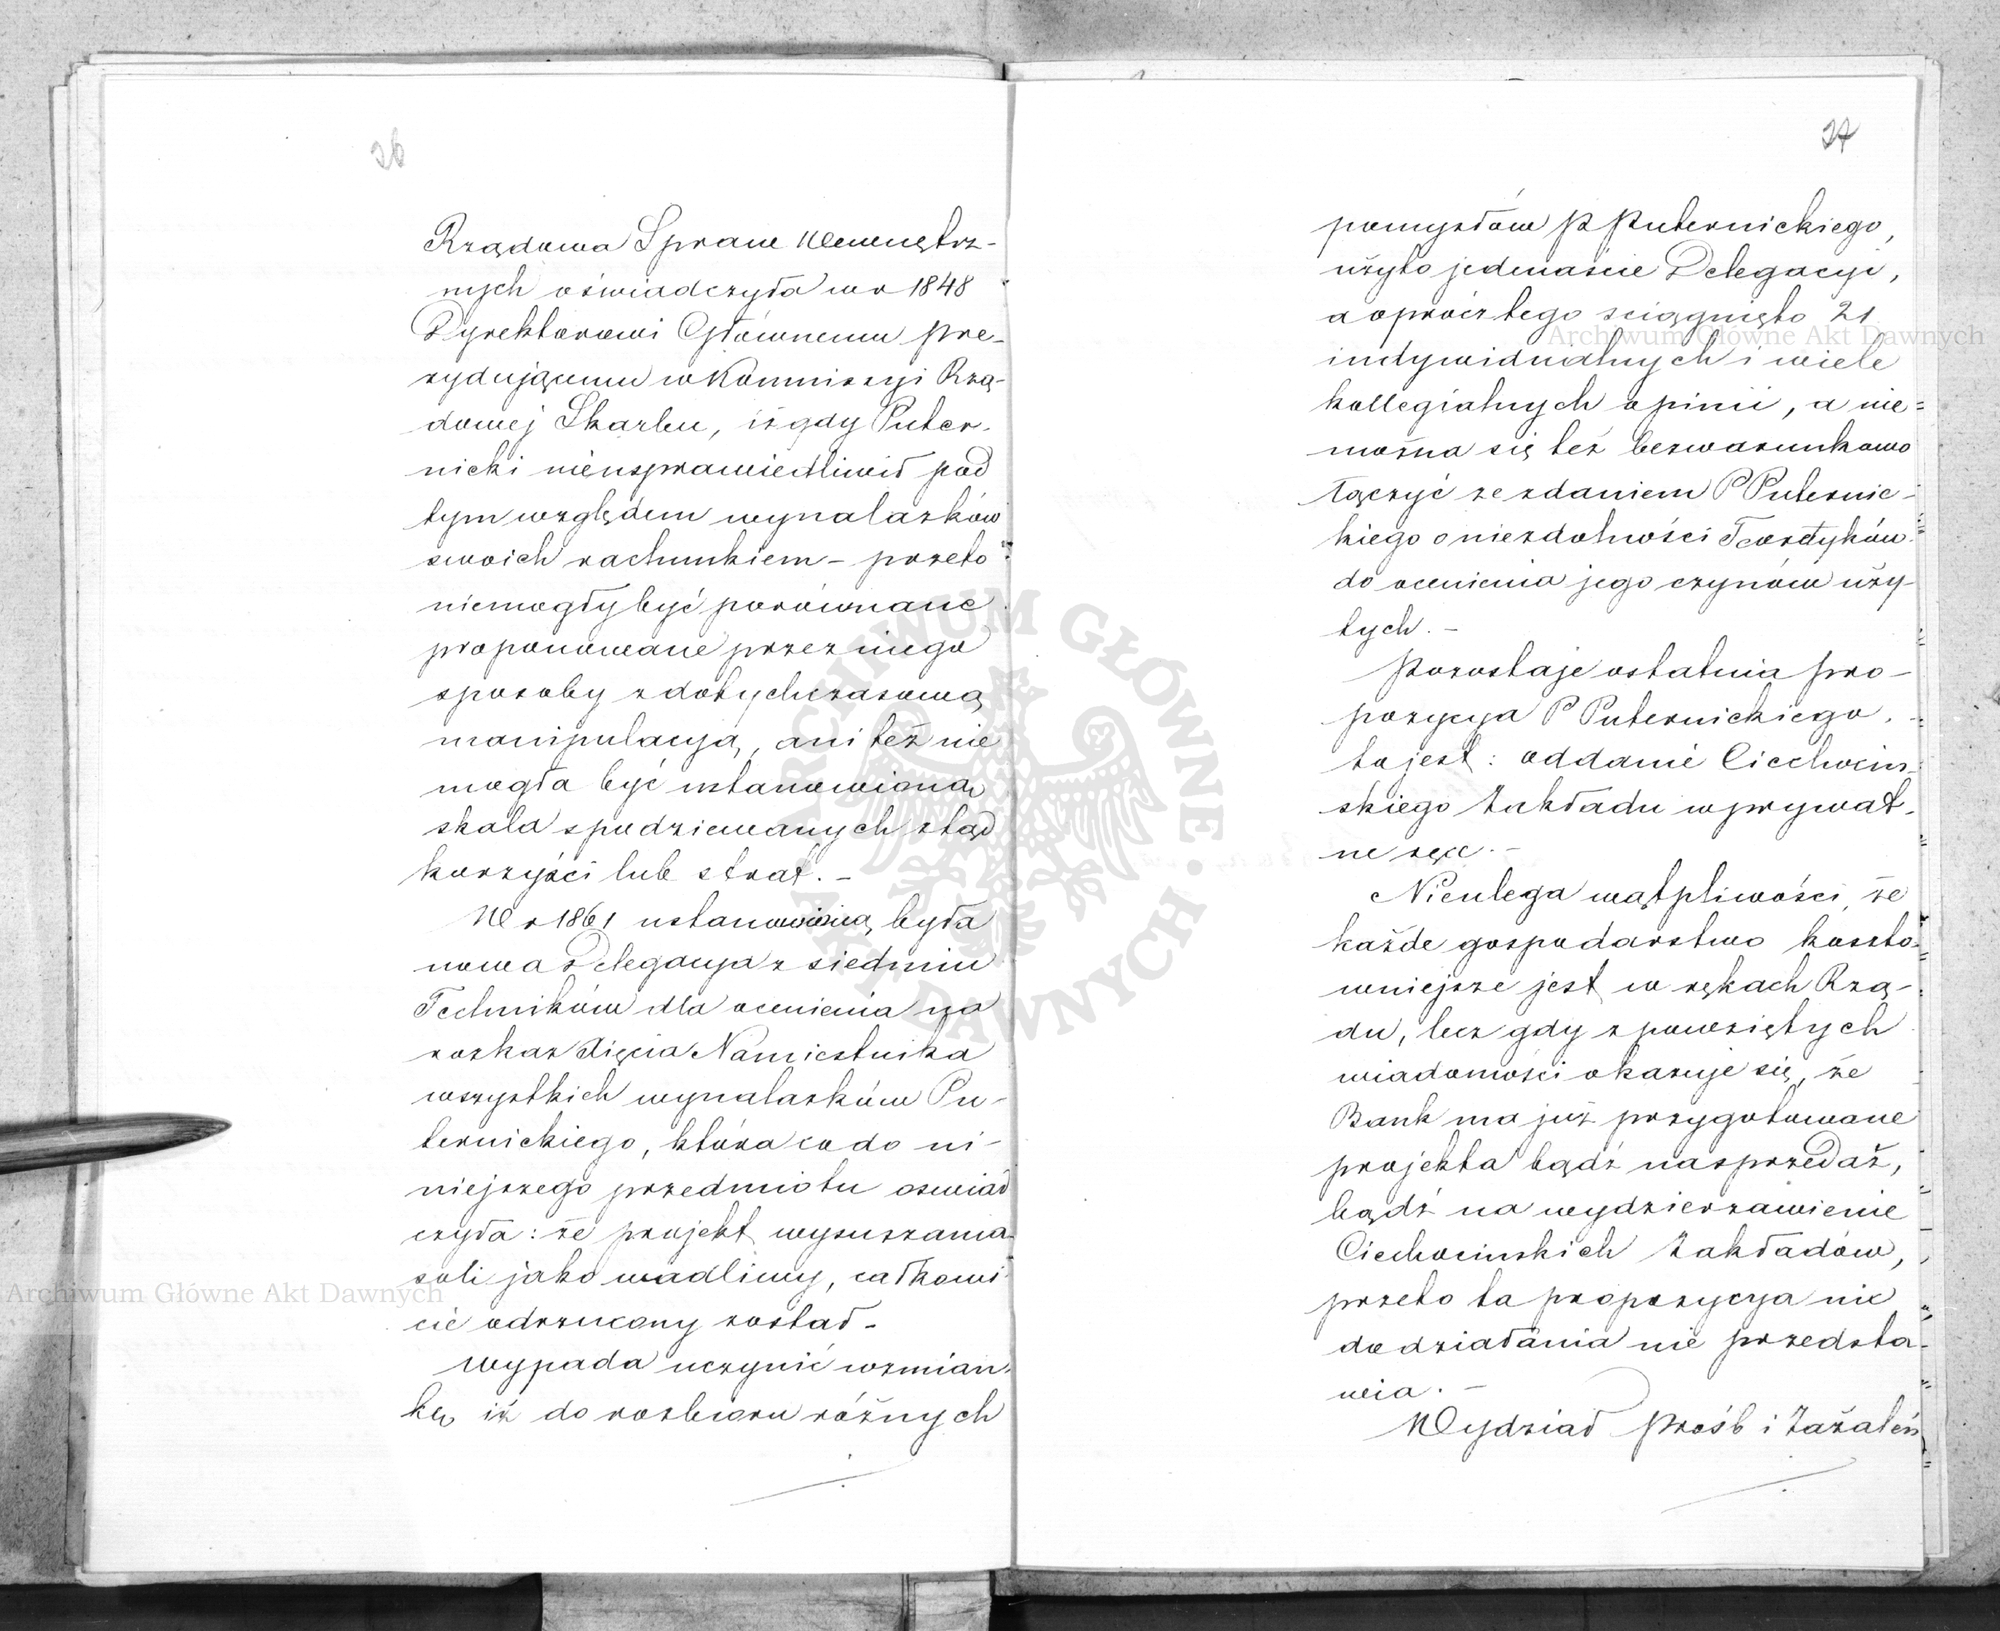 26
Rządowa Spraw Wewnętrz-
nych oświadczyła w r 1848
Dyrektorowi Głównemu pre-
zydującemu w Kommissyi Rzą-
dowej Skarbu, iż gdy Puter-
nicki nieusprawiedliwił pod
tym względem wynalazków
swoich rachunkiem - przeto
niemogły być porównane
proponowane przez niego
sposoby z dotychczasową
manipulacyą, ani też nie
mogła być ustanowioną
skala spodziewanych ztąd
korzyści lub strat. -
W r 1861 ustanowioną była
nowa Delegacya z siedmiu
Techników dla ocenienia na
rozkaz Xięcia Namiestnika
wszystkich wynalazków Pu-
ternickiego, która co do ni-
niejszego przedmiotu oświad
czyła: że projekt wysuszania
soli jako wadliwy, całkowi-
cie odrzucony został -
Wypada uczynić wzmian-
kę iż do rozbioru różnych
27
pomysłów P Puternickiego,
użyto jedenaście Delegacyi,
a oprócz tego sciągnięto 21
indywidualnych i wiele
kollegialnych opinii, a nie-
można się też bezwarunkowo
łączyć ze zdaniem P Puternic-
kiego o niezdolności Teoretyków
do ocenienia jego czynów uży-
tych. -
Pozostaje ostatnia pro-
pozycya P Puternickiego,
to jest: oddanie Ciechocin-
skiego Zakładu w prywat-
ne ręce. -
Nieulega wątpliwości, że
każde gospodarstwo koszto-
wniejsze jest w rękach Rzą-
du, lecz gdy z powziętych
wiadomości okazuje się, że
Bank ma już przygotowane
projekta bądź na sprzedaż,
bądź na wydzierzawienie
Ciechocinskich Zakładów,
przeto ta propozycya nic
do działania nie przedsta-
wia. -
Wydział Próśb i Zażaleń
Archiwum Główne Akt Dawnych
Archiwum Główne Akt Dawnych
ARCHIWUM GŁÓWNE AKT DAWNYCH